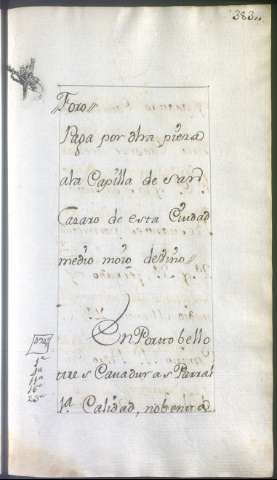 383..
Foro//
Paga por dha pieza
ala Capilla de San
Lazaro de esta Ciudad
medio moio de vino//
En Portobello
tres Cavaduras Parral
1ª Calidad, nobenta